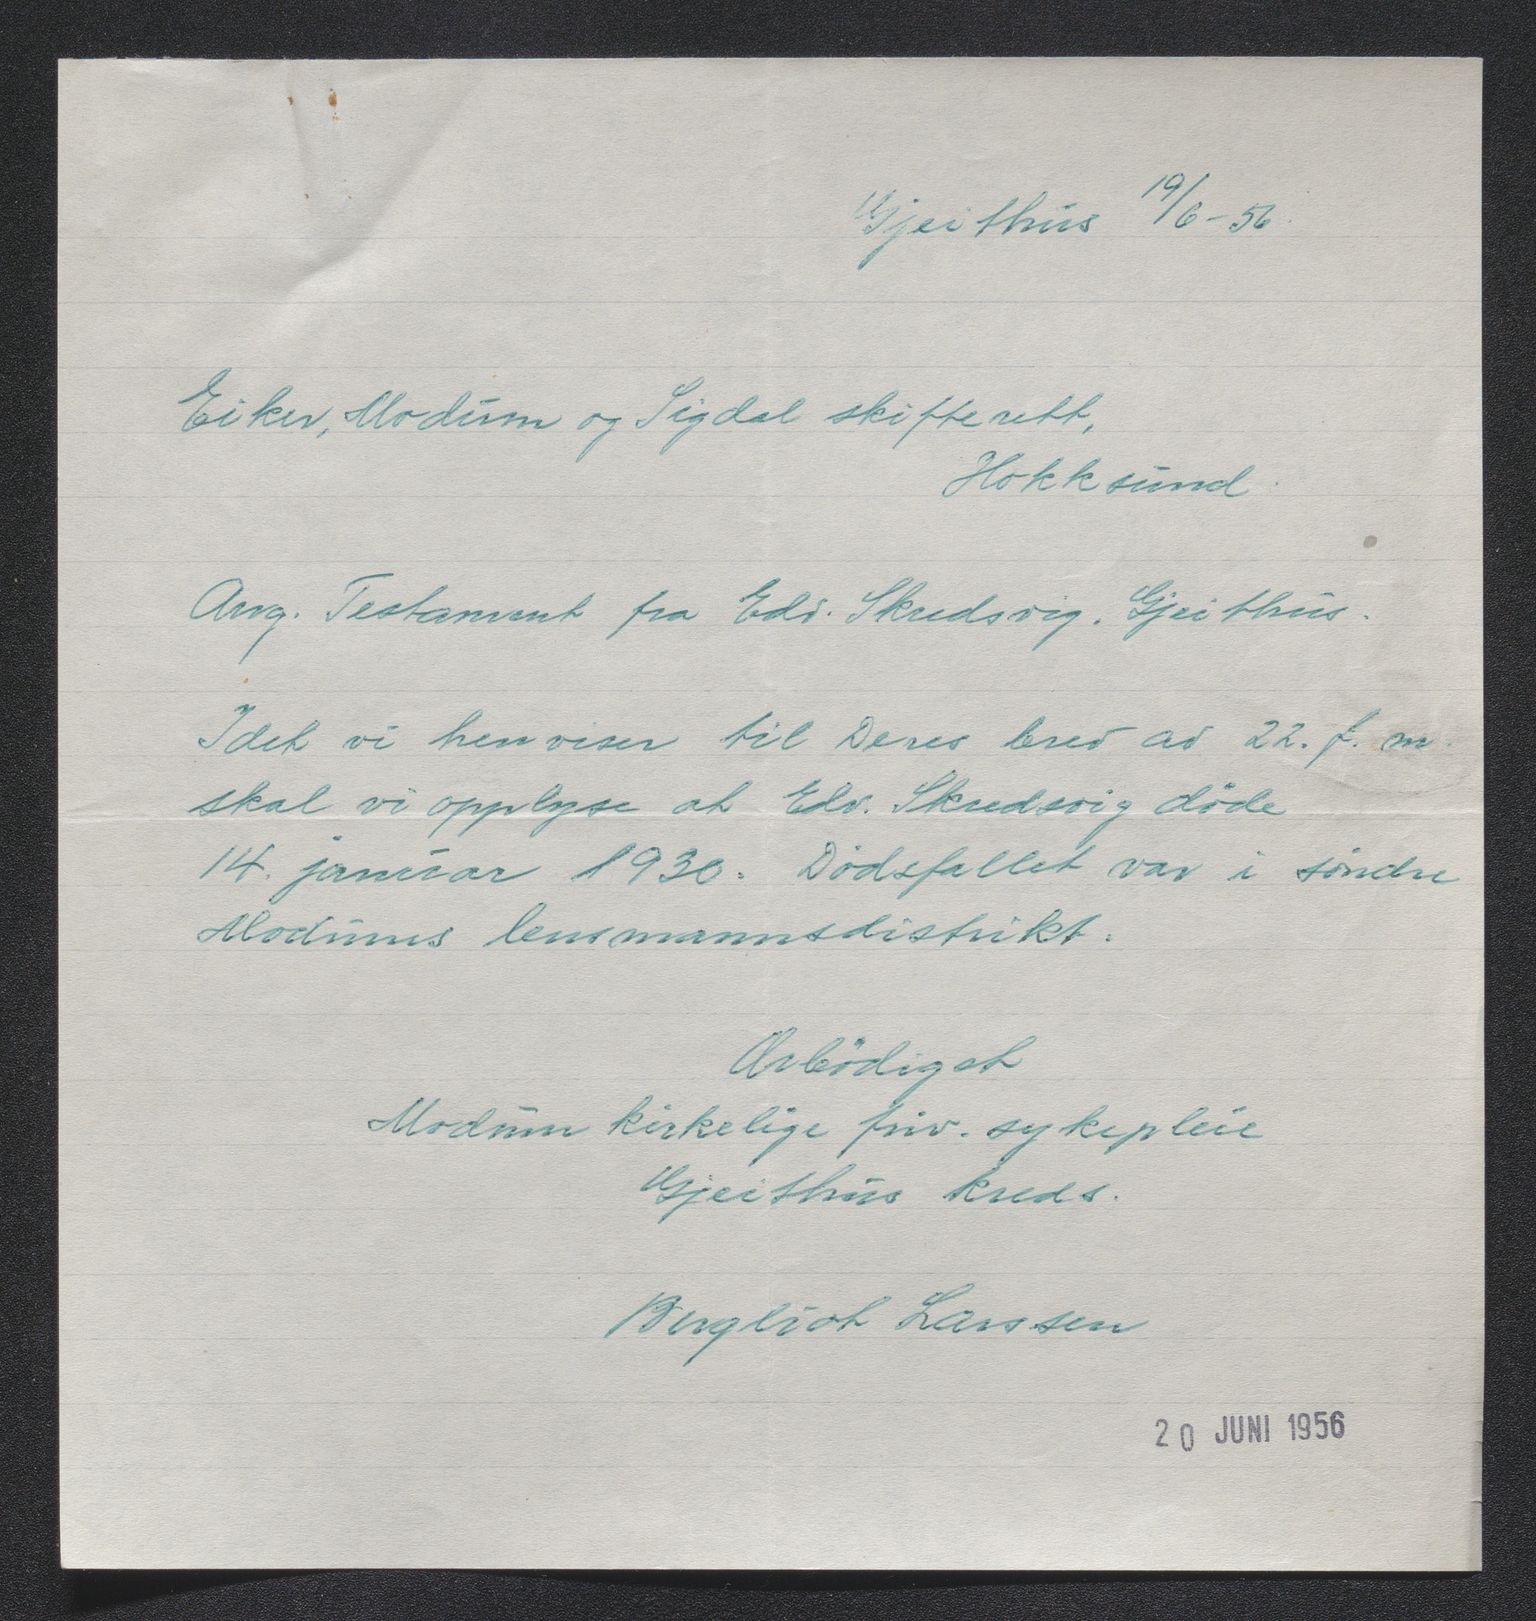 Gjeithus 19/6-56.
Eiker, Modum og Sigdal skifterett,
Hokksund.
Ang. Testament fra Edv. Skredsvig. Gjeithus.
Idet vi henviser til Deres brev av 22. f. m.
skal vi opplyse at Edv. Skredsvig döde
14. januar 1930. Dödsfallet var i söndre
Modums lensmannsdistrikt.
Ærbödigst
Modum kirkelige friv. sykepleie
Gjeithus kreds.
Bergliot Larssen
20 JUNI 1956